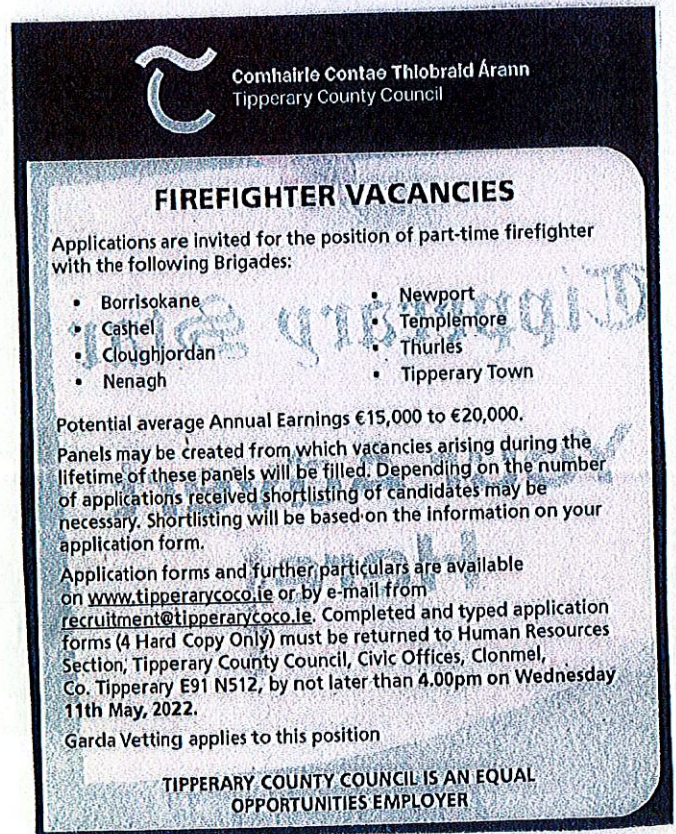 Comhairle Contae Thiobraid Árann
Tipperary County Council
FIREFIGHTER VACANCIES
Applications are invited for the position of part-time firefighter
with the following Brigades:
• Borrisokane
• Cashel
• Cloughjordan
• Nenagh
• Newport
• Templemore
• Thurles
• Tipperary Town
Potential average Annual Earnings €15,000 to €20,000.
Panels may be created from which vacancies arising during the
lifetime of these panels will be filled. Depending on the number
of applications received shortlisting of candidates may be
necessary. Shortlisting will be based on the information on your
application form.
Application forms and further particulars are available
on www.tipperarycoco.ie or by e-mail from
recruitment@tipperarycoco.ie. Completed and typed application
forms (4 Hard Copy Only) must be returned to Human Resources
Section, Tipperary County Council, Civic Offices, Clonmel,
Co. Tipperary E91 N512, by not later than 4.00pm on Wednesday
11th May, 2022.
Garda Vetting applies to this position
TIPPERARY COUNTY COUNCIL IS AN EQUAL
OPPORTUNITIES EMPLOYER
Tipperary Star
Here!